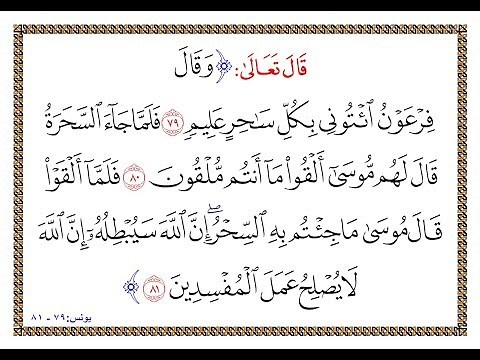 قَالَ تَعَالَىٰ: ﴿وَقَالَ
فِرْعَوْنُ ٱئْتُونِى بِكُلِّ سَـٰحِرٍ عَلِيمٍ ٧٩ فَلَمَّا جَآءَ ٱلسَّحَرَةُ
قَالَ لَهُم مُّوسَىٰٓ أَلْقُوا۟ مَآ أَنتُم مُّلْقُونَ ٨٠ فَلَمَّآ أَلْقَوْا۟
قَالَ مُوسَىٰ مَا جِئْتُم بِهِ ٱلسِّحْرُ ۖ إِنَّ ٱللَّهَ سَيُبْطِلُهُۥٓ ۖ إِنَّ ٱللَّهَ
لَا يُصْلِحُ عَمَلَ ٱلْمُفْسِدِينَ ٨١﴾
يونس: ٧٩ - ٨١